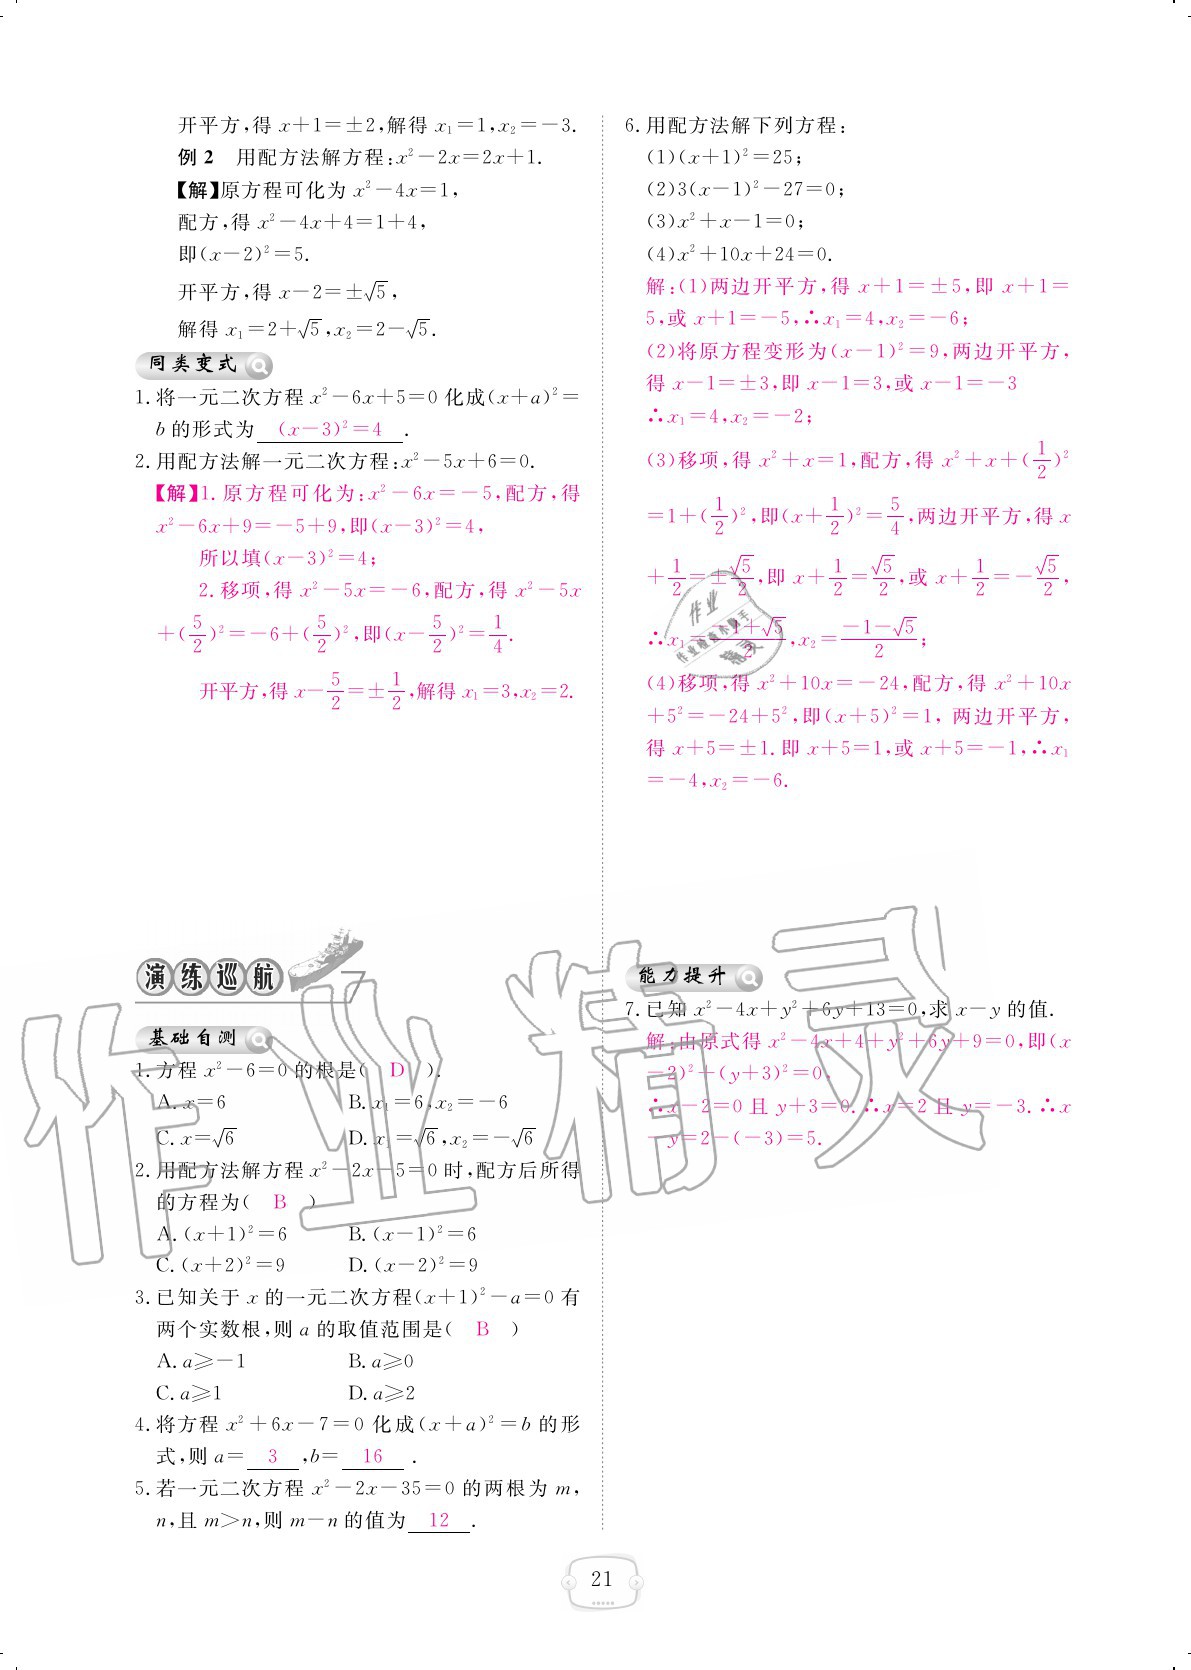 开平方,得 x+1=±2,解得 x₁=1,x₂=-3.
例 2 用配方法解方程:x²-2x=2x+1.
【解】原方程可化为 x²-4x=1,
配方,得 x²-4x+4=1+4,
即(x-2)²=5.
开平方,得 x-2=±√5,
解得 x₁=2+√5,x₂=2-√5.
同类变式
1. 将一元二次方程 x²-6x+5=0 化成(x+a)²=
b 的形式为 (x-3)²=4 .
2. 用配方法解一元二次方程:x²-5x+6=0.
【解】1. 原方程可化为:x²-6x=-5,配方,得
x²-6x+9=-5+9,即(x-3)²=4,
所以填(x-3)²=4;
2. 移项,得 x²-5x=-6,配方,得 x²-5x
+(5/2)²=-6+(5/2)²,即(x-5/2)²=1/4.
开平方,得 x-5/2=±1/2,解得 x₁=3,x₂=2.
演练巡航
基础自测
1. 方程 x²-6=0 的根是( D ).
A. x=6 B. x₁=6,x₂=-6
C. x=√6 D. x₁=√6,x₂=-√6
2. 用配方法解方程 x²-2x-5=0 时,配方后所得
的方程为( B )
A. (x+1)²=6 B. (x-1)²=6
C. (x+2)²=9 D. (x-2)²=9
3. 已知关于 x 的一元二次方程(x+1)²-a=0 有
两个实数根,则 a 的取值范围是( B )
A. a⩾-1 B. a⩾0
C. a⩾1 D. a⩾2
4. 将方程 x²+6x-7=0 化成(x+a)²=b 的形
式,则 a= 3 ,b= 16 .
5. 若一元二次方程 x²-2x-35=0 的两根为 m,
n,且 m>n,则 m-n 的值为 12 .
6. 用配方法解下列方程:
(1)(x+1)²=25;
(2)3(x-1)²-27=0;
(3)x²+x-1=0;
(4)x²+10x+24=0.
解:(1)两边开平方,得 x+1=±5,即 x+1=
5,或 x+1=-5,∴x₁=4,x₂=-6;
(2)将原方程变形为(x-1)²=9,两边开平方,
得 x-1=±3,即 x-1=3,或 x-1=-3
∴x₁=4,x₂=-2;
(3)移项,得 x²+x=1,配方,得 x²+x+(1/2)²
=1+(1/2)²,即(x+1/2)²=5/4,两边开平方,得 x
+1/2=±√5/2,即 x+1/2=√5/2,或 x+1/2=-√5/2,
∴x₁=-1+√5/2,x₂=-1-√5/2;
(4)移项,得 x²+10x=-24,配方,得 x²+10x
+5²=-24+5²,即(x+5)²=1, 两边开平方,
得 x+5=±1. 即 x+5=1,或 x+5=-1,∴x₁
=-4,x₂=-6.
能力提升
7. 已知 x²-4x+y²+6y+13=0,求 x-y 的值.
解:由原式得 x²-4x+4+y²+6y+9=0,即(x
-2)²+(y+3)²=0,
∴x-2=0 且 y+3=0. ∴x=2 且 y=-3. ∴x
-y=2-(-3)=5.
作业精灵
21